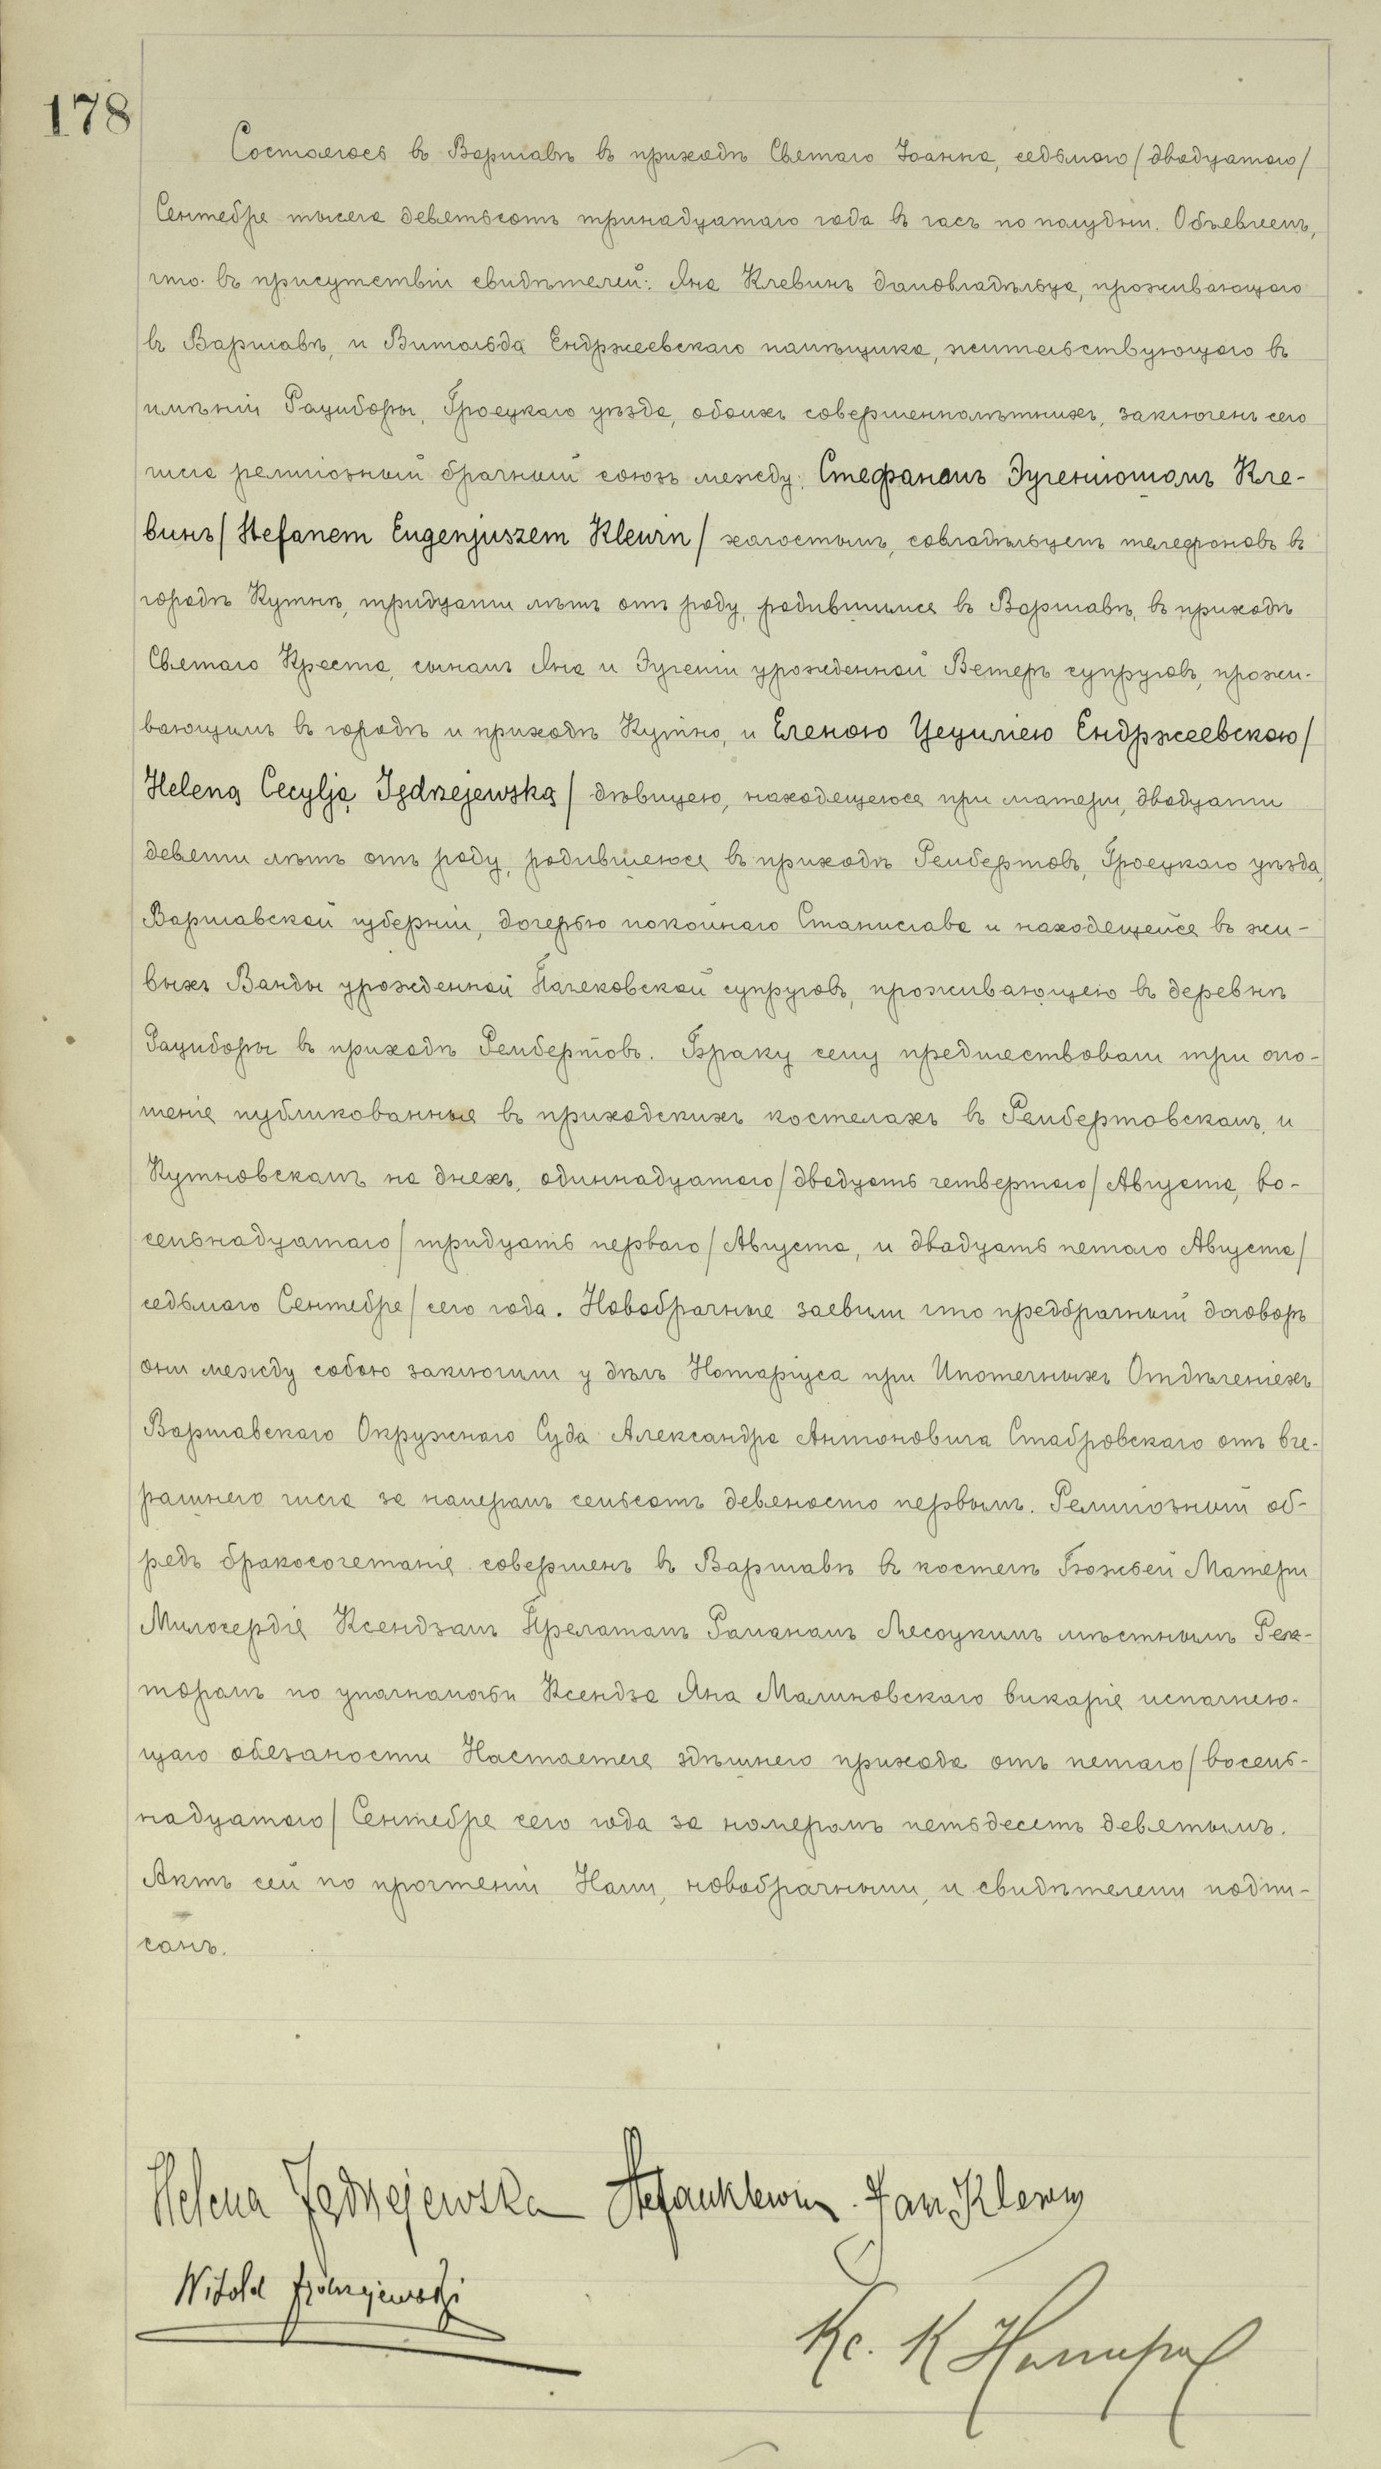 178
Состоялось въ Варшавѣ въ приходѣ Святаго Іоанна, седьмаго /двадцатаго/
Сентября тысяча девятьсотъ тринадцатаго года въ часъ по полудни. Объявляемъ,
что въ присутствіи свидѣтелей: Яна Клевинъ домовладѣльца, проживающаго
въ Варшавѣ, и Витольда Ендржеевскаго помѣщика, жительствующаго въ
имѣніи Рациборы, Гроецкаго уѣзда, обоихъ совершеннолѣтнихъ, заключенъ сего
числа религіозный брачный союзъ между: Стефаномъ Эугеніюшомъ Кле-
винъ /Stefanem Eugenjuszem Klewin/ холостымъ, совладѣльцемъ телефоновъ въ
городѣ Кутнѣ, тридцати лѣтъ отъ роду, родившимся въ Варшавѣ, въ приходѣ
Святаго Креста, сыномъ Яна и Эугеніи урожденной Ветеръ супруговъ, прожи-
вающимъ въ городѣ и приходѣ Кутно, и Еленою Цецилiею Ендржеевскою/
Heleną Cecylją Jędrzejewską/ дѣвицею, находящеюся при матери, двадцати
девяти лѣтъ отъ роду, родившеюся въ приходѣ Рембертовъ, Гроецкаго уѣзда,
Варшавской губерніи, дочерью покойнаго Станислава и находящейся въ жи-
выхъ Ванды урожденной Пачековской супруговъ, проживающею въ деревнѣ
Рациборы въ приходѣ Рембертовъ. Браку сему предшествовали три огло-
шенія публикованныя въ приходскихъ костелахъ въ Рембертовскомъ, и
Кутновскомъ на дняхъ, одиннадцатаго /двадцать четвертаго/ Августа, во-
семьнадцатаго /тридцать перваго/ Августа, и двадцать пятаго Августа/
седьмаго Сентября/ сего года. Новобрачные заявили что предбрачный договоръ
они между собою заключили у дѣлъ Нотаріуса при Ипотечныхъ Отдѣленіяхъ
Варшавскаго Окружнаго Суда Александра Антоновича Стабровскаго отъ вче-
рашняго числа за номеромъ семьсотъ девяносто первымъ. Религіозный об-
рядъ бракосочетанія совершенъ въ Варшавѣ въ костелѣ Божьей Матери
Милосердія Ксендзомъ Прелатомъ Романомъ Лясоцкимъ мѣстнымъ Рек-
торомъ по уполномочіи Ксендза Яна Малиновскаго викарія исполняю-
щаго обязаности Настоятеля здѣшняго прихода отъ пятаго /восемь-
надцатаго/ Сентября сего года за номеромъ пятьдесятъ девятымъ.
Актъ сей по прочтеніи Нами, новобрачными, и свидѣтелями подпи-
санъ.
Helena Jędrzejewska Stefan Klewin. Jan Klewin
Witold Jędrzejewski
Кс. К